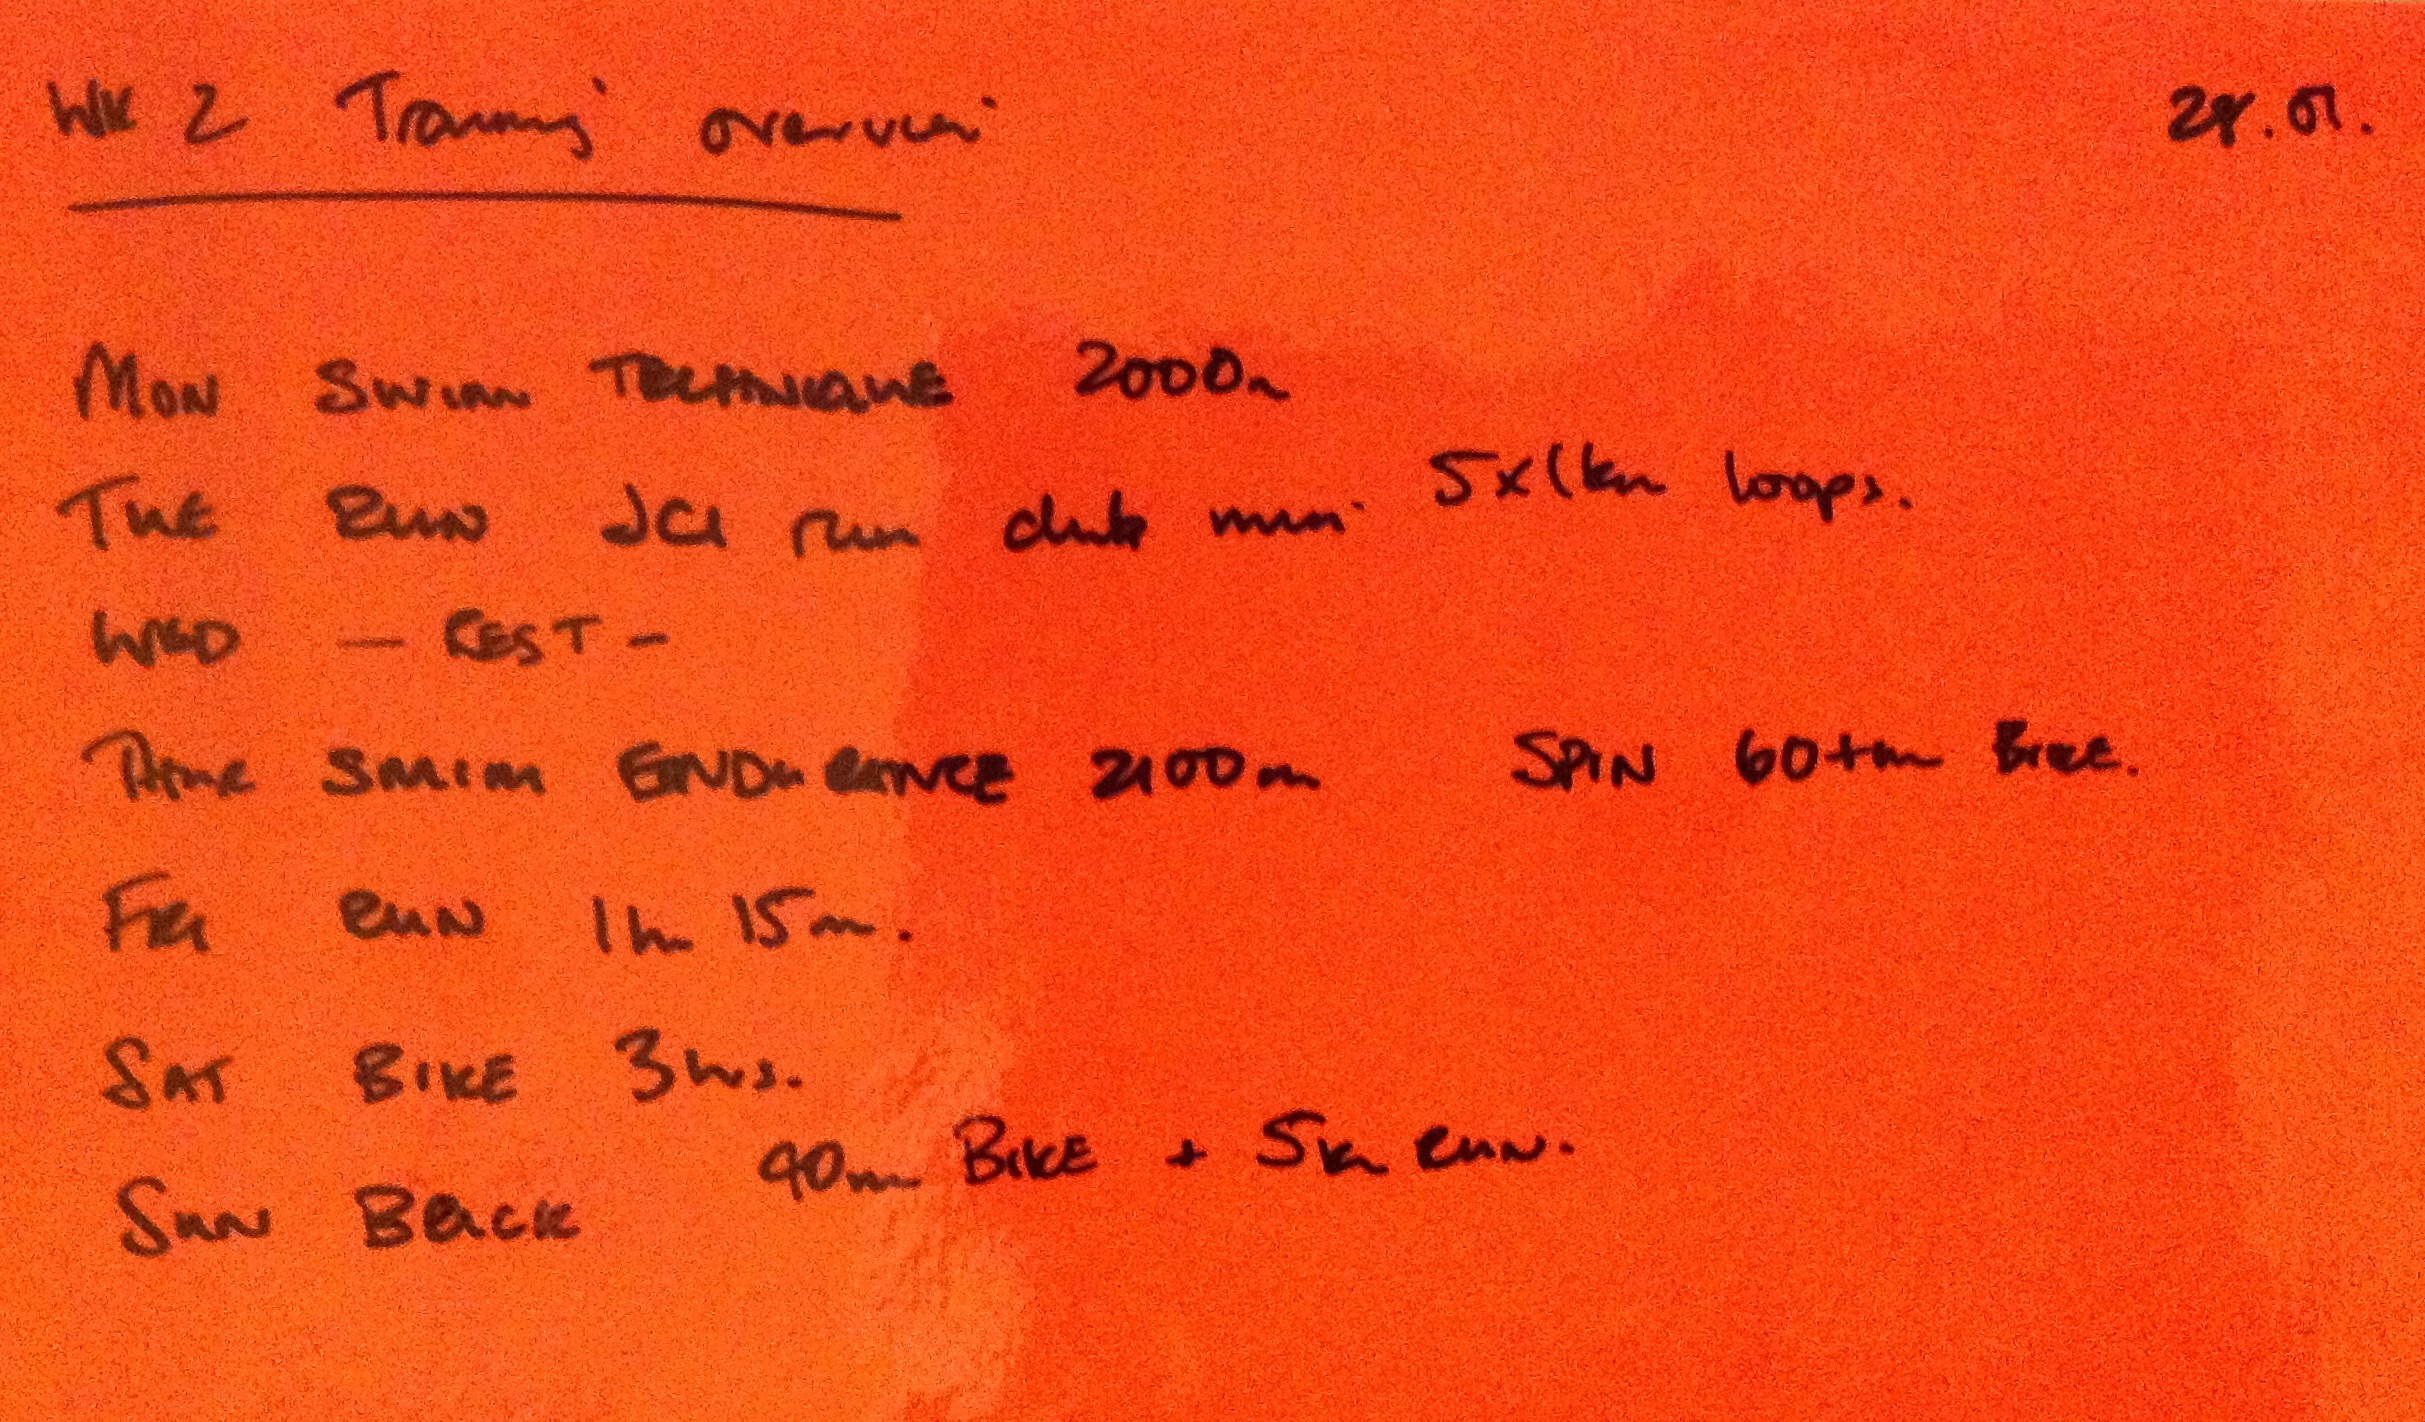 Wk 2 Training overview 28.01.
MON SWIM TECHNIQUE 2000m
TUE RUN JCI run club min. 5x1km loops.
WED — REST -
THUR SWIM ENDURANCE 2100m SPIN 60+m BIKE.
FRI RUN 1hr 15m.
SAT BIKE 3hrs.
SUN BRICK 90m BIKE + 5km RUN.